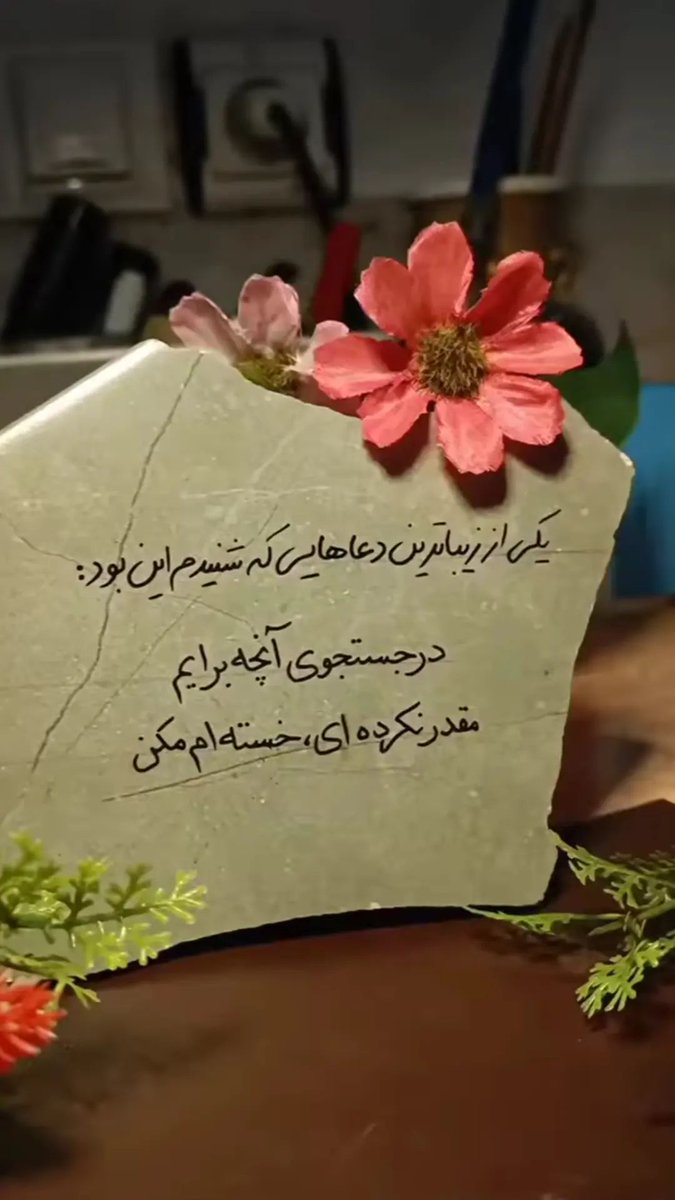 یکی از زیباترین دعاهایی که شنیدم این بود:
در جستجوی آنچه برایم
مقدر نکرده ای، خسته ام مکن